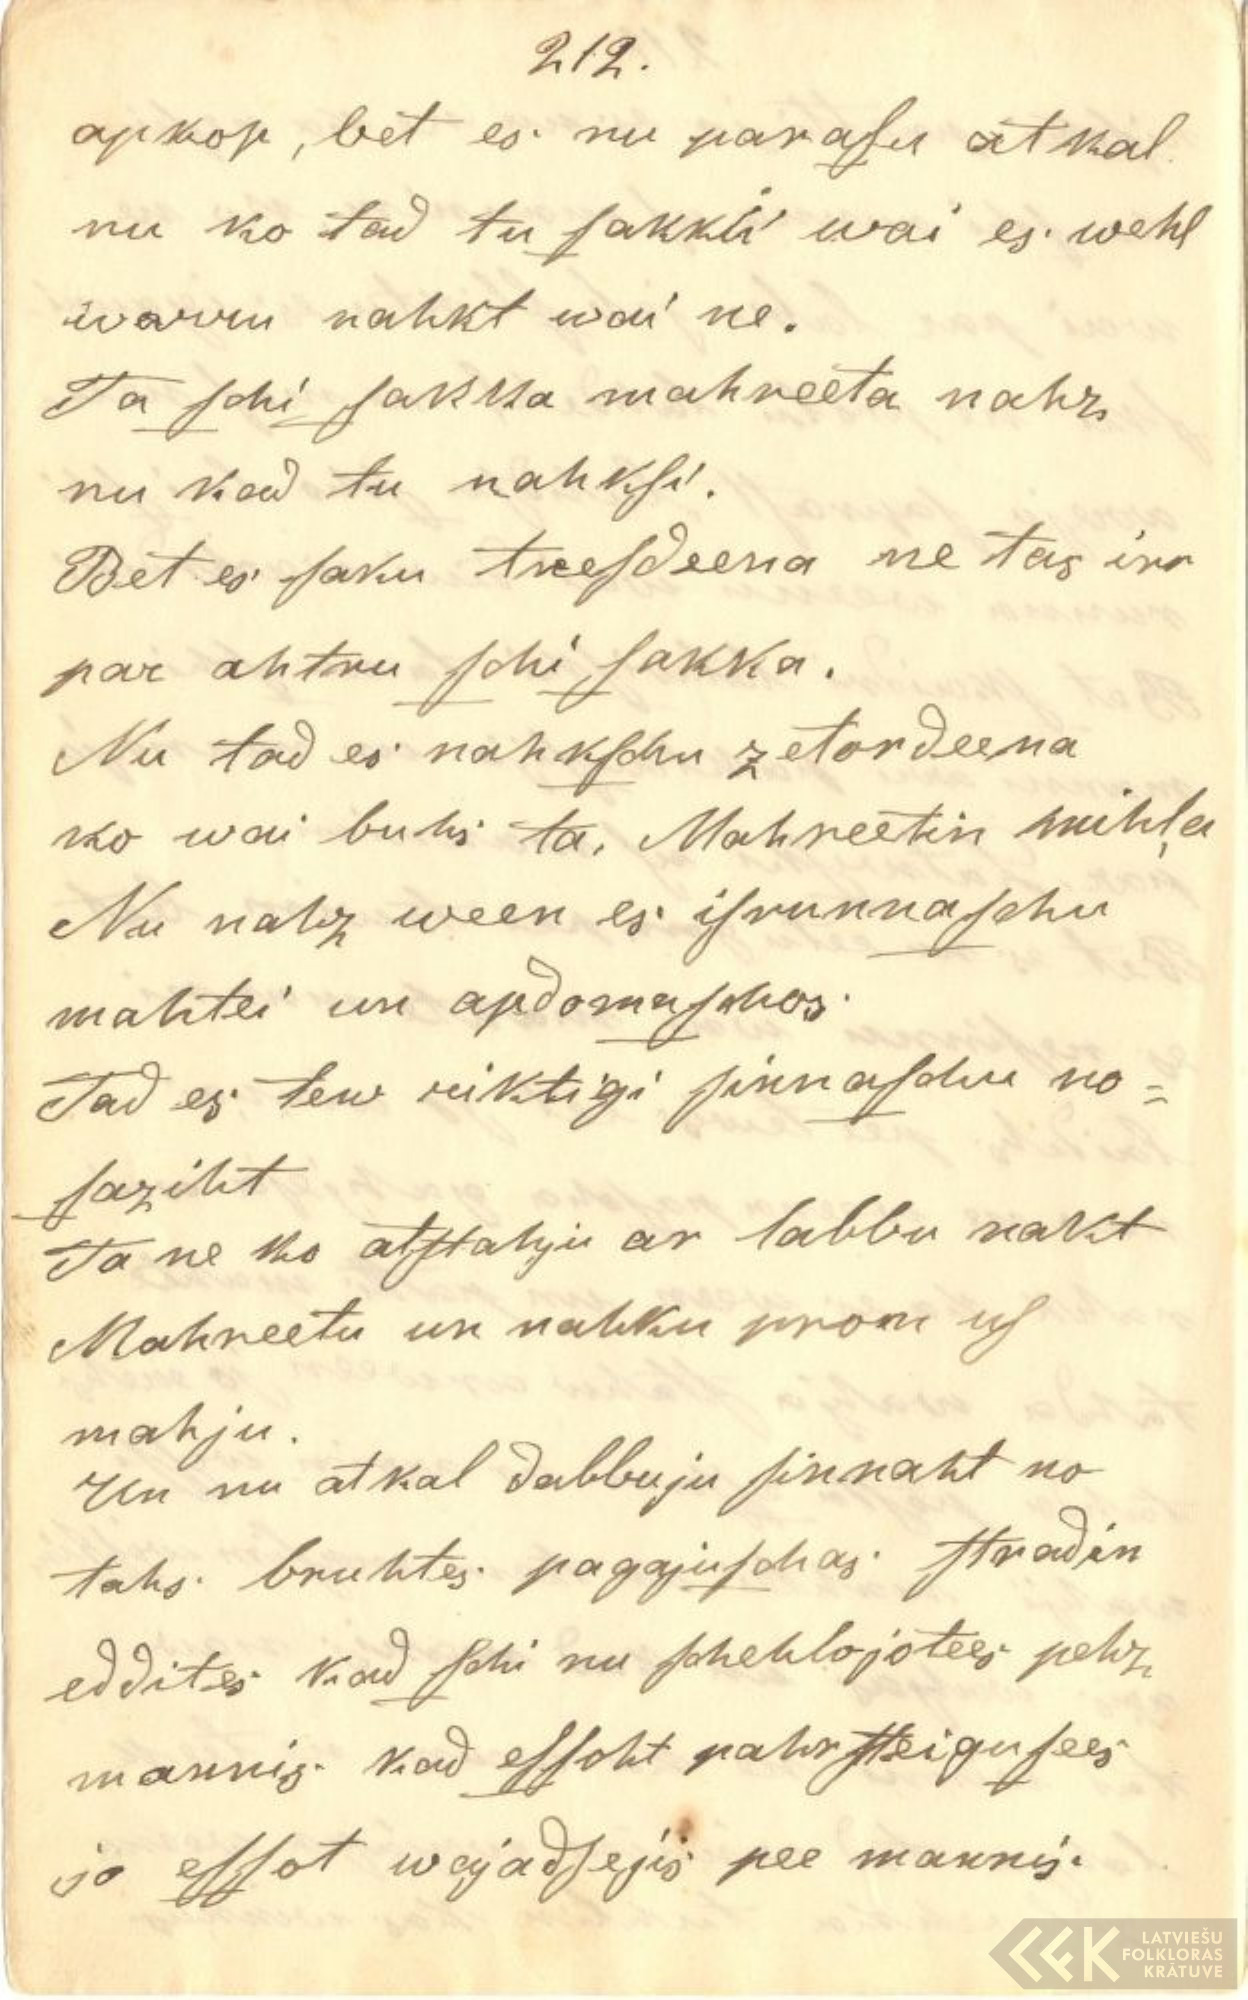 212.
apkop, bet es nu paraſu atkal
nu ko tad tu ſakki wai es wehl
warru nahkt wai ne.
Ta ſchi ſakka mahreeta nahz
nu kad tu nahkſi.
Bet es ſaku treeſdeena ne tas irr
par ahtru ſchi ſakka.
Nu tad es nahkſchu zetordeena
ko wai buhs ta, Mahreetin mihļa
Nu nahz ween es iſrunnaſchu
mahtei un apdomaſchos
Tad es tew riktigi ſinnaſchu no=
ſaziht
Ta ne ko atſtahju ar labbu nakt
Mahreetu un nahku prom uſ
mahju.
Un nu atkal dabbuju ſinnaht no
tahs bruhtes pagajuſchas ſtradin
eddites kad ſchi nu ſchehlojotees pehz
mannis kad eſſoht pahrſteiguſees
jo eſſot wajadſejis pee mannis.
LATVIEŠU
FOLKLORAS
KRĀTUVE